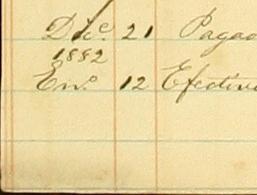 Dic. 21 Pagad
1882
En.º 12 Efectiv